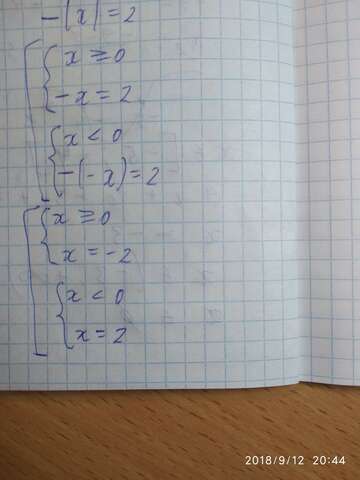 -|x|=2
x ≥ 0
-x = 2
x < 0
-(-x)=2
x ≥ 0
x = -2
x < 0
x = 2
2018/9/12 20:44